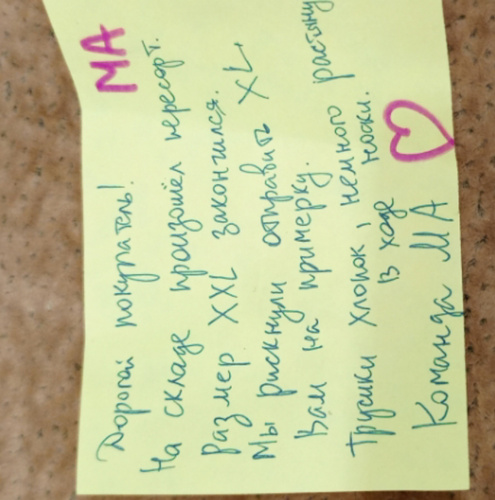 МА
Дорогой покупатель!
На складе произошёл пересорт.
Размер XXL закончился.
Мы рискнули отправить XL,
Вам на примерку.
Трусики хлопок, немного растяну
в ходе носки.
Команда МА